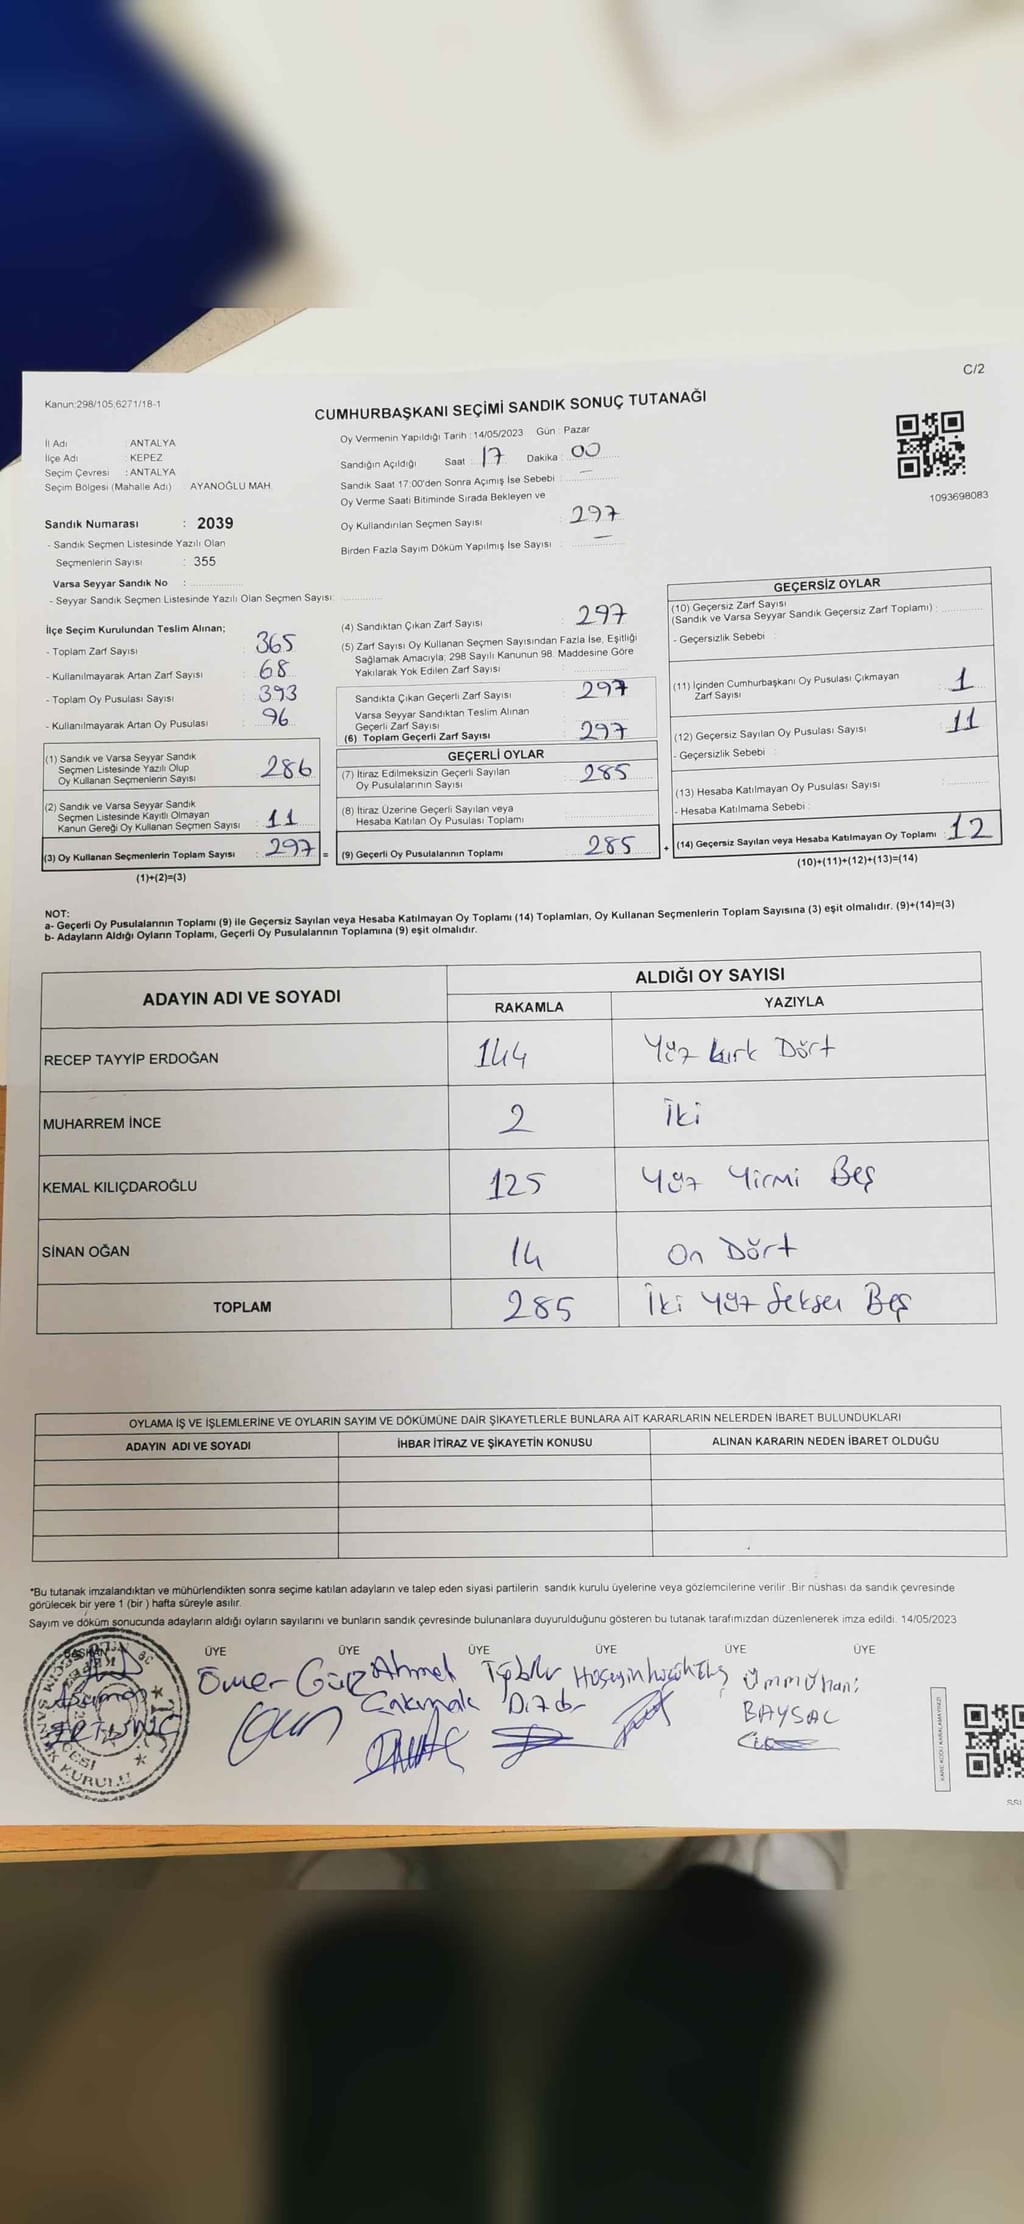 C/2
Kanun:298/105,6271/18-1
CUMHURBAŞKANI SEÇİMİ SANDIK SONUÇ TUTANAĞI
İl Adı : ANTALYA
İlçe Adı : KEPEZ
Seçim Çevresi : ANTALYA
Seçim Bölgesi (Mahalle Adı) : AYANOĞLU MAH.
Sandık Numarası : 2039
- Sandık Seçmen Listesinde Yazılı Olan
Seçmenlerin Sayısı : 355
Varsa Seyyar Sandık No :
- Seyyar Sandık Seçmen Listesinde Yazılı Olan Seçmen Sayısı:
Oy Vermenin Yapıldığı Tarih : 14/05/2023 Gün : Pazar
Sandığın Açıldığı Saat : 17 Dakika : 00
Sandık Saat 17:00'den Sonra Açımış İse Sebebi : —
Oy Verme Saati Bitiminde Sırada Bekleyen ve
Oy Kullandırılan Seçmen Sayısı : 297
Birden Fazla Sayım Döküm Yapılmış İse Sayısı : —
1093698083
İlçe Seçim Kurulundan Teslim Alınan;
- Toplam Zarf Sayısı : 365
- Kullanılmayarak Artan Zarf Sayısı : 68
- Toplam Oy Pusulası Sayısı : 393
- Kullanılmayarak Artan Oy Pusulası : 96
(1) Sandık ve Varsa Seyyar Sandık
Seçmen Listesinde Yazılı Olup
Oy Kullanan Seçmenlerin Sayısı : 286
(2) Sandık ve Varsa Seyyar Sandık
Seçmen Listesinde Kayıtlı Olmayan
Kanun Gereği Oy Kullanan Seçmen Sayısı : 11
(3) Oy Kullanan Seçmenlerin Toplam Sayısı : 297 =
(1)+(2)=(3)
(4) Sandıktan Çıkan Zarf Sayısı : 297
(5) Zarf Sayısı Oy Kullanan Seçmen Sayısından Fazla İse, Eşitliği
Sağlamak Amacıyla; 298 Sayılı Kanunun 98. Maddesine Göre
Yakılarak Yok Edilen Zarf Sayısı :
Sandıkta Çıkan Geçerli Zarf Sayısı : 297
Varsa Seyyar Sandıktan Teslim Alınan
Geçerli Zarf Sayısı
(6) Toplam Geçerli Zarf Sayısı : 297
GEÇERLİ OYLAR
(7) İtiraz Edilmeksizin Geçerli Sayılan
Oy Pusulalarının Sayısı : 285
(8) İtiraz Üzerine Geçerli Sayılan veya
Hesaba Katılan Oy Pusulası Toplamı :
(9) Geçerli Oy Pusulalarının Toplamı : 285 +
GEÇERSİZ OYLAR
(10) Geçersiz Zarf Sayısı
(Sandık ve Varsa Seyyar Sandık Geçersiz Zarf Toplamı) :
- Geçersizlik Sebebi :
(11) İçinden Cumhurbaşkanı Oy Pusulası Çıkmayan
Zarf Sayısı : 1
(12) Geçersiz Sayılan Oy Pusulası Sayısı : 11
- Geçersizlik Sebebi :
(13) Hesaba Katılmayan Oy Pusulası Sayısı :
- Hesaba Katılmama Sebebi :
(14) Geçersiz Sayılan veya Hesaba Katılmayan Oy Toplamı : 12
(10)+(11)+(12)+(13)=(14)
NOT:
a- Geçerli Oy Pusulalarının Toplamı (9) ile Geçersiz Sayılan veya Hesaba Katılmayan Oy Toplamı (14) Toplamları, Oy Kullanan Seçmenlerin Toplam Sayısına (3) eşit olmalıdır. (9)+(14)=(3)
b- Adayların Aldığı Oyların Toplamı, Geçerli Oy Pusulalarının Toplamına (9) eşit olmalıdır.
ADAYIN ADI VE SOYADI ALDIĞI OY SAYISI
RAKAMLA YAZIYLA
RECEP TAYYİP ERDOĞAN 144 Yüz kırk Dört
MUHARREM İNCE 2 İki
KEMAL KILIÇDAROĞLU 125 Yüz Yirmi Beş
SİNAN OĞAN 14 On Dört
TOPLAM 285 İki Yüz Seksen Beş
OYLAMA İŞ VE İŞLEMLERİNE VE OYLARIN SAYIM VE DÖKÜMÜNE DAİR ŞİKAYETLERLE BUNLARA AİT KARARLARIN NELERDEN İBARET BULUNDUKLARI
ADAYIN ADI VE SOYADI İHBAR İTİRAZ VE ŞİKAYETİN KONUSU ALINAN KARARIN NEDEN İBARET OLDUĞU
*Bu tutanak imzalandıktan ve mühürlendikten sonra seçime katılan adayların ve talep eden siyasi partilerin sandık kurulu üyelerine veya gözlemcilerine verilir. Bir nüshası da sandık çevresinde
görülecek bir yere 1 (bir ) hafta süreyle asılır.
Sayım ve döküm sonucunda adayların aldığı oyların sayılarını ve bunların sandık çevresinde bulunanlara duyurulduğunu gösteren bu tutanak tarafımızdan düzenlenerek imza edildi. 14/05/2023
BAŞKAN ÜYE ÜYE ÜYE ÜYE ÜYE ÜYE
Ömer Gül Ahmet
Ümmühani
BAYSAL
KURULU